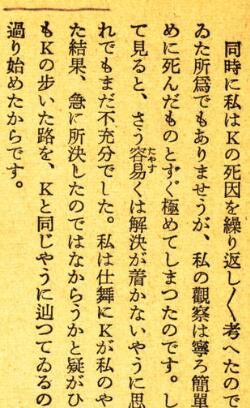 同時に私はKの死因を繰り返し〳〵考へたので
ゐた所爲でもありませうが、私の觀察は寧ろ簡單
めに死んだものとすぐ極めてしまつたのです。し
て見ると、さう容易くは解決が着かないやうに思
れでもまだ不充分でした。私は仕舞にKが私のや
た結果、急に所決したのではなからうかと疑がひ
もKの歩いた路を、Kと同じやうに辿つてゐるの
過り始めたからです。